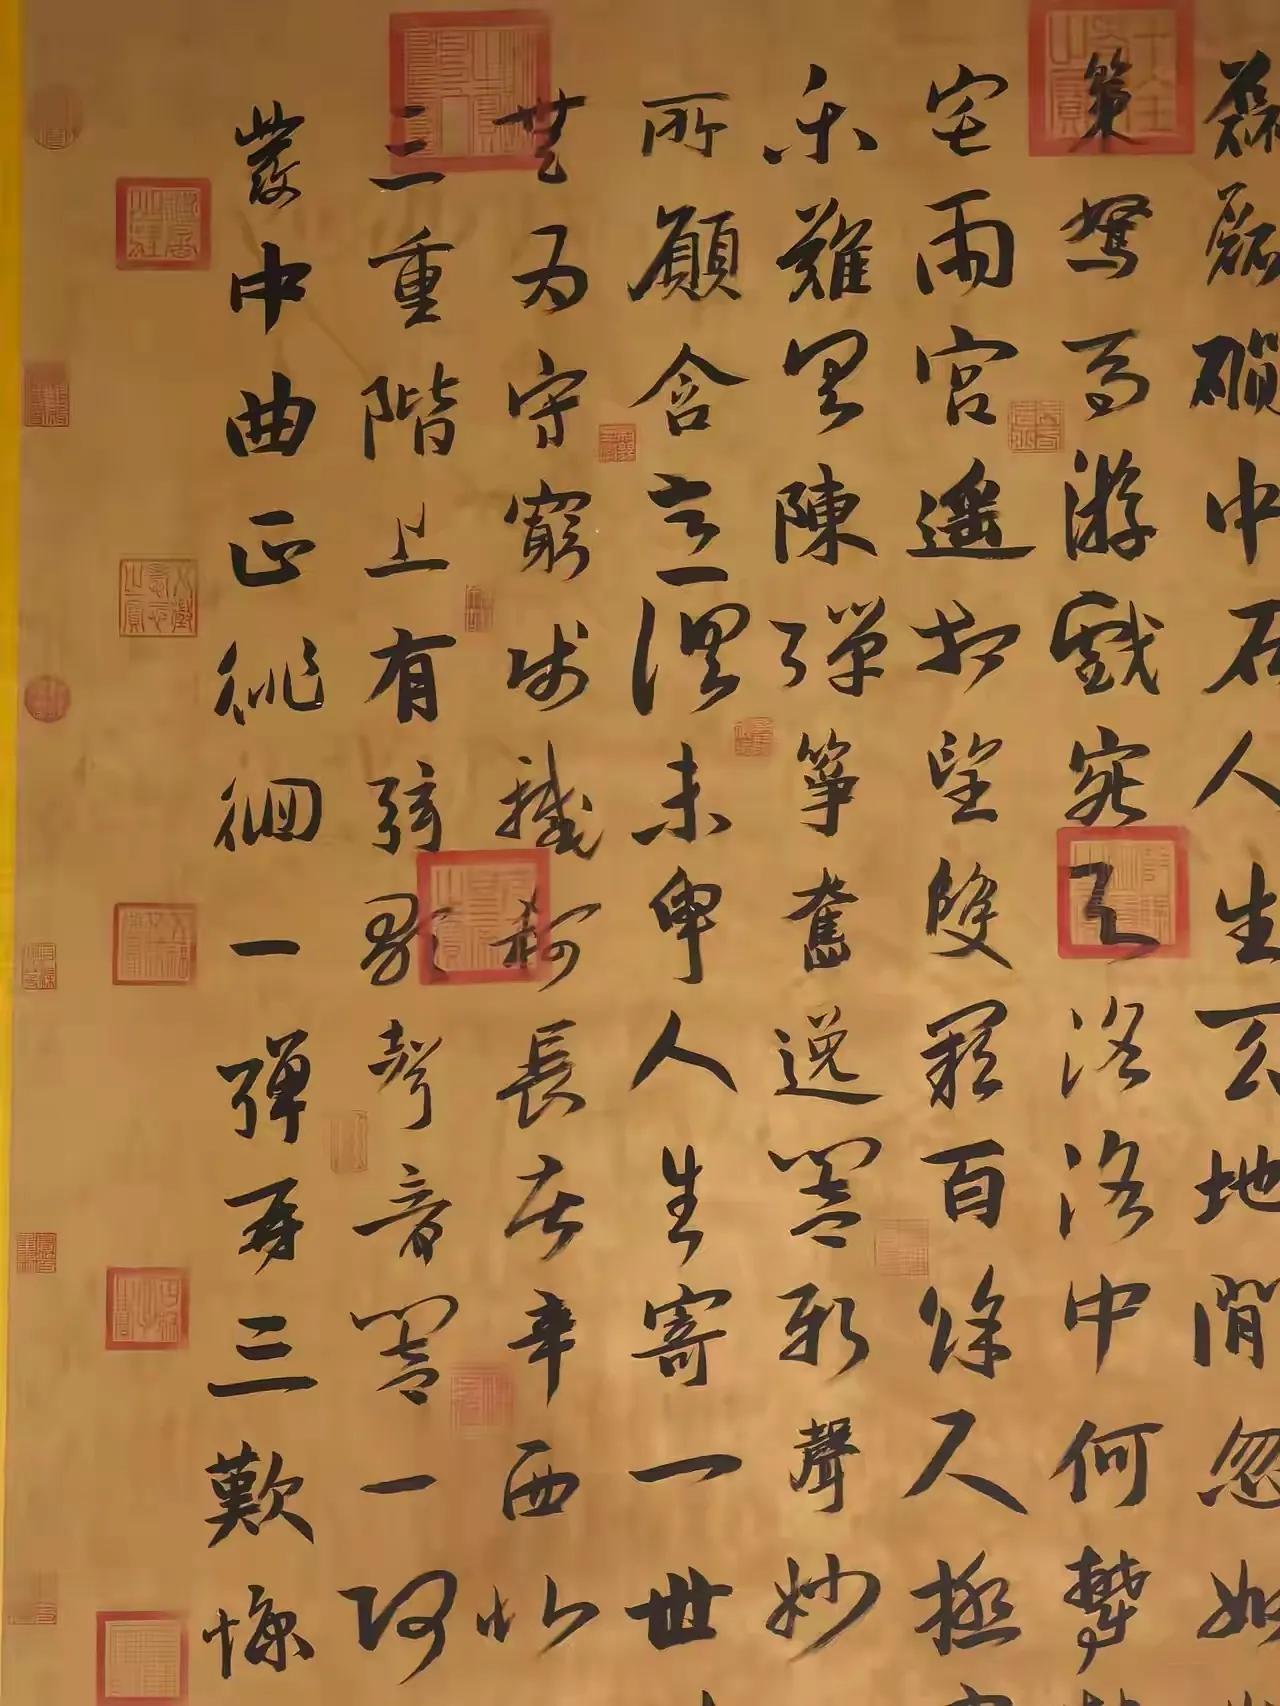 磊磊磵中石人生天地間忽如
策駑馬游戲宛与洛洛中何鬱
宅兩宮遥相望雙闕百餘尺極
樂難具陳彈箏奮逸響新聲妙
所願含意俱未申人生寄一世
無為守窮賤轗軻長苦辛西北
三重階上有弦歌聲音響一何
發中曲正徘徊一彈再三歎慷